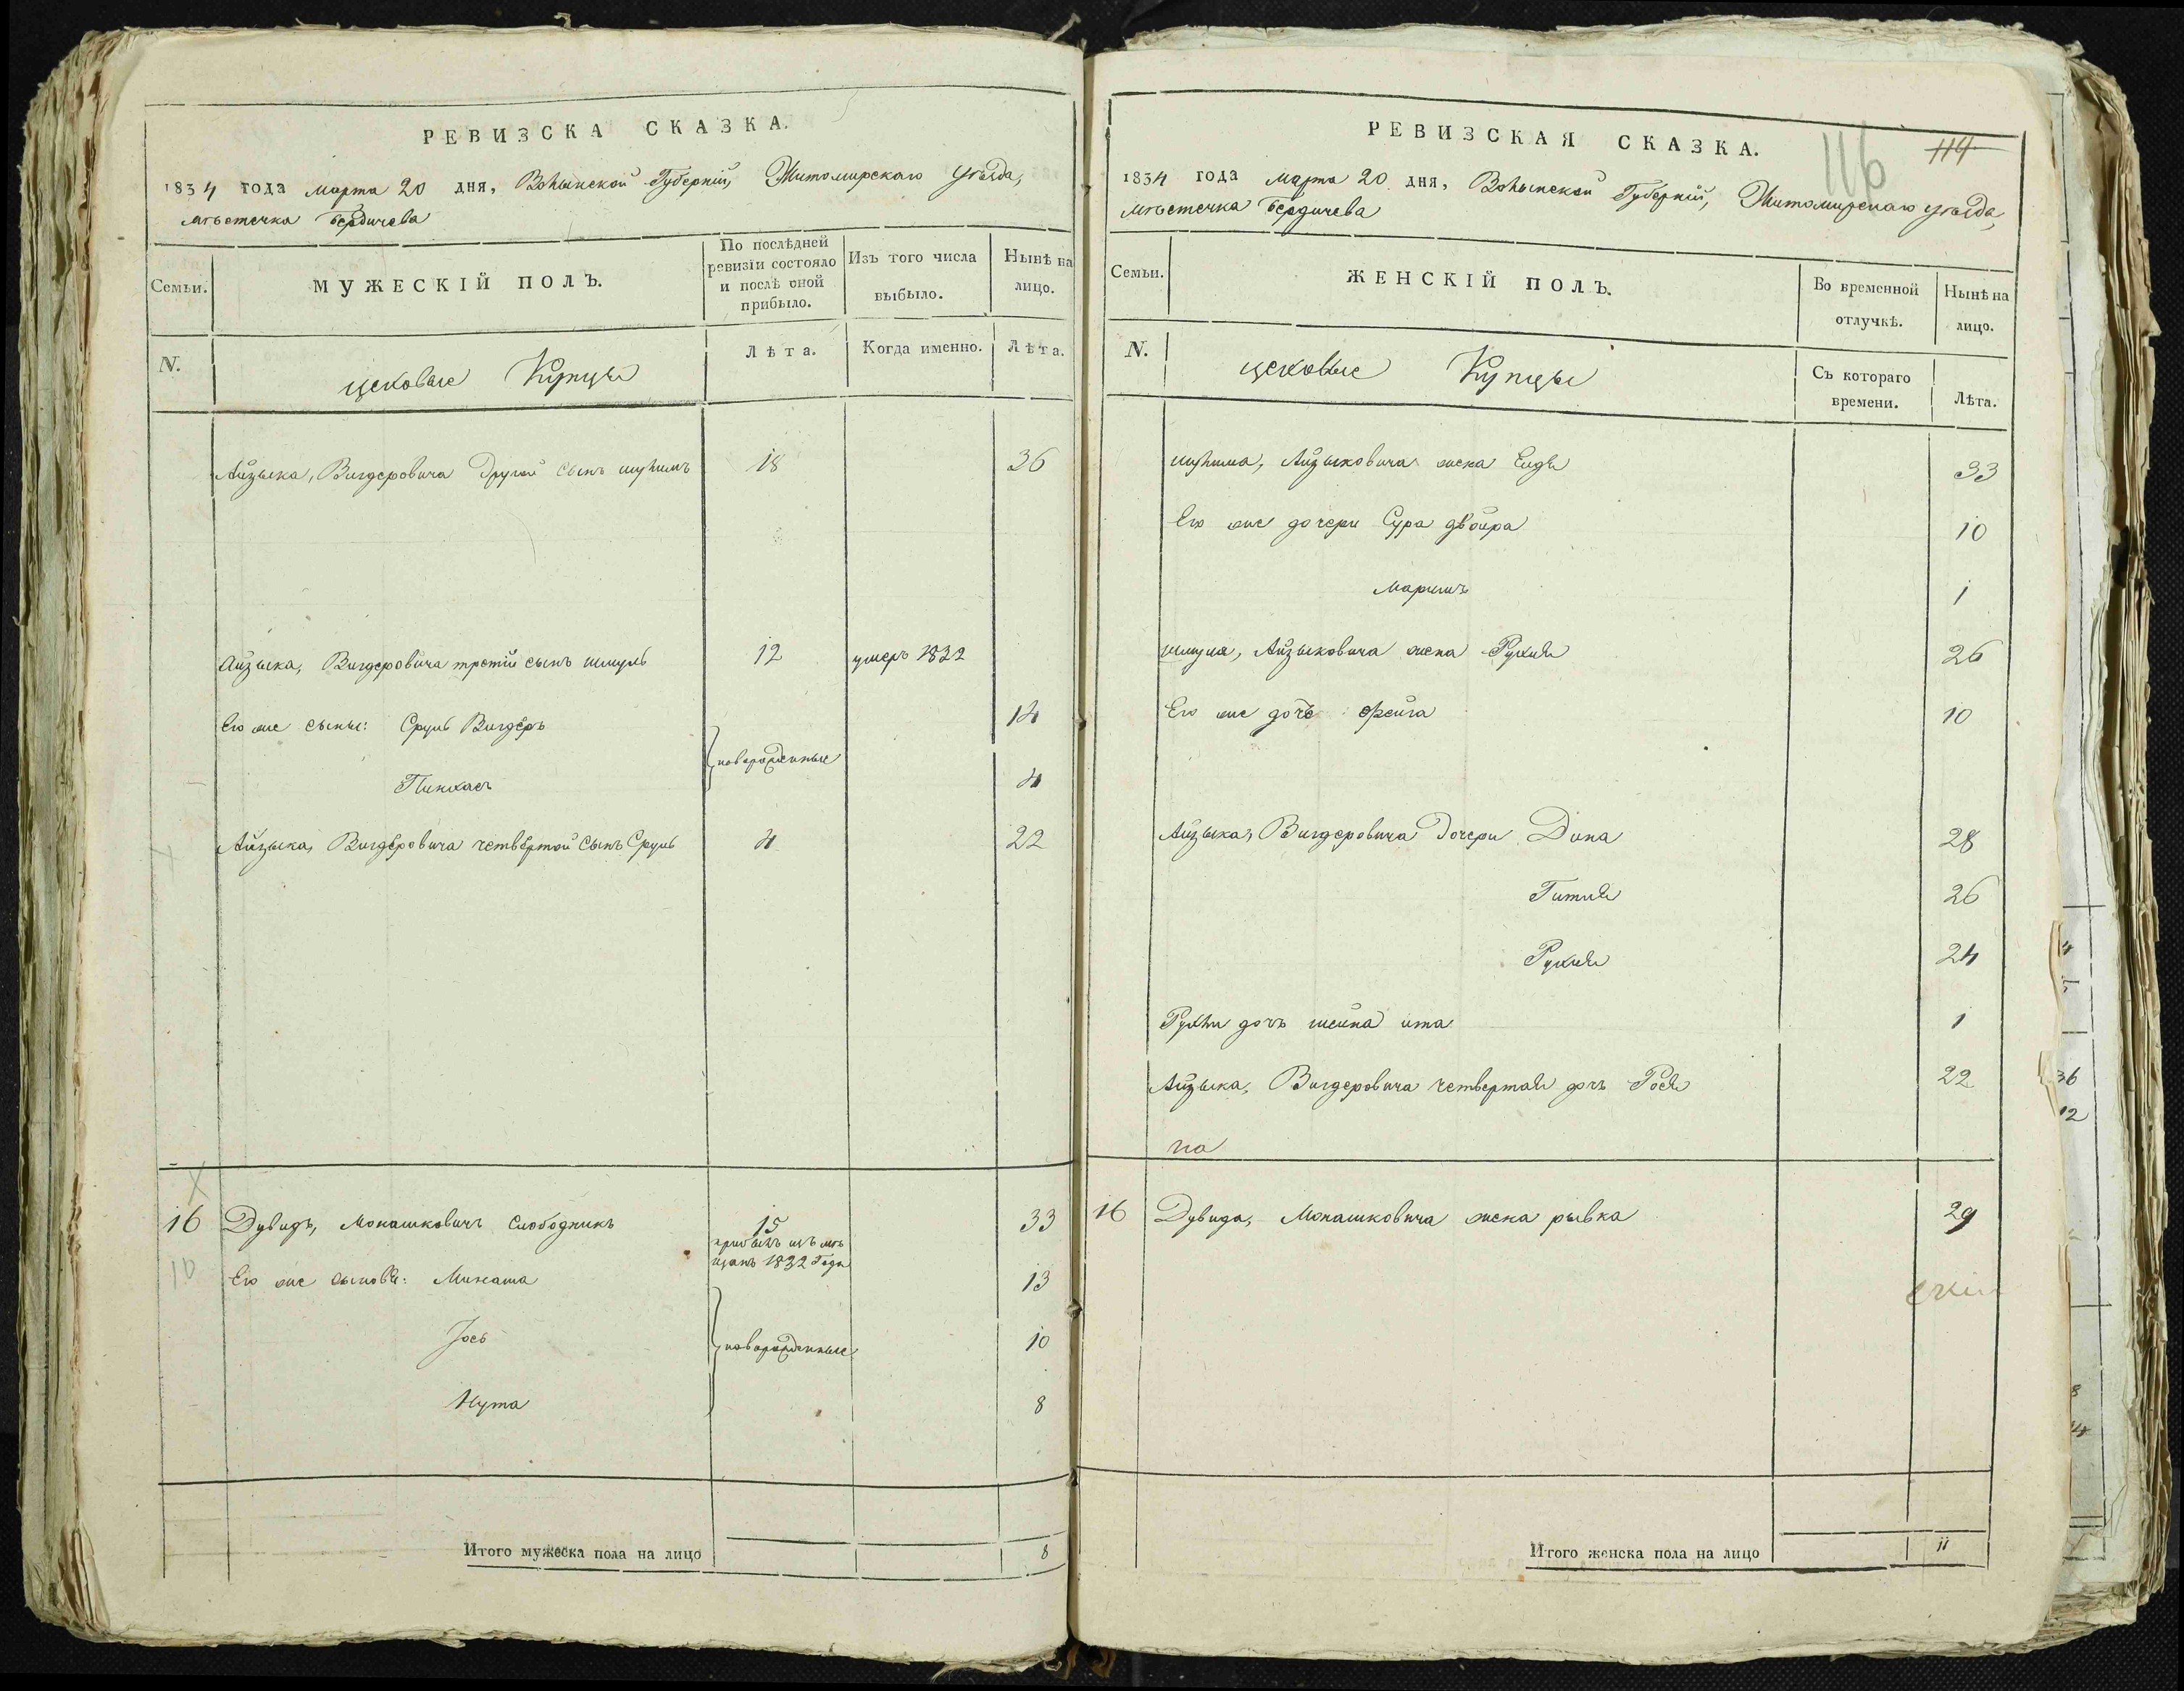 РЕВИЗСКА СКАЗКА.
1834 года марта 20 дня, Волынской Губерніи, Житомирскаго уѣзда,
мѣстечка Бердичева
Семьи.
МУЖЕСКІЙ ПОЛЪ.
По послѣдней
ревизіи состояло
и послѣ оной
прибыло.
Изъ того числа
выбыло.
Нынѣ на
лицо.
N.
цеховые Купцы
Лѣта.
Когда именно.
Лѣта.
Айзыка, Вигдеровича другой сынъ шулимъ 18 36
Айзыка, Вигдеровича третій сынъ шмуль 12 умеръ 1832
Его же сыны: Сруль Вигдеръ 14
новорожденные
Пинхасъ 4
Айзыка, Вигдеровича четвертой сынъ Сруль 4 22
16 Дувидъ, Монашковичъ Слободникъ 15 33
прибылъ изъ мѣ
щанъ 1832 Года
10 Его же сыновья: Минаша 13
Іось 10
новорожденные
Нута 8
Итого мужеска пола на лицо 8
РЕВИЗСКАЯ СКАЗКА.
116 114
1834 года марта 20 дня, Волынской Губерніи, Житомирскаго уѣзда,
мѣстечка Бердичева
Семьи.
ЖЕНСКІЙ ПОЛЪ.
Во временной
отлучкѣ.
Нынѣ на
лицо.
N.
цеховые Купцы
Съ котораго
времени.
Лѣта.
шулима, Айзыковича жена 33
Его же дочери Сура двойра 10
Маримъ 1
шмуля, Айзыковича жена Рухля 26
Его же дочь Фейга 10
Айзыка, Вигдеровича дочери Дина 28
Гитля 26
Рухля 24
Рухли дочь шейна ита 1
Айзыка, Вигдеровича четвертая дочь Рося 22
на
16 Дувида, Монашковича жена рывка 29
Итого женска пола на лицо 11